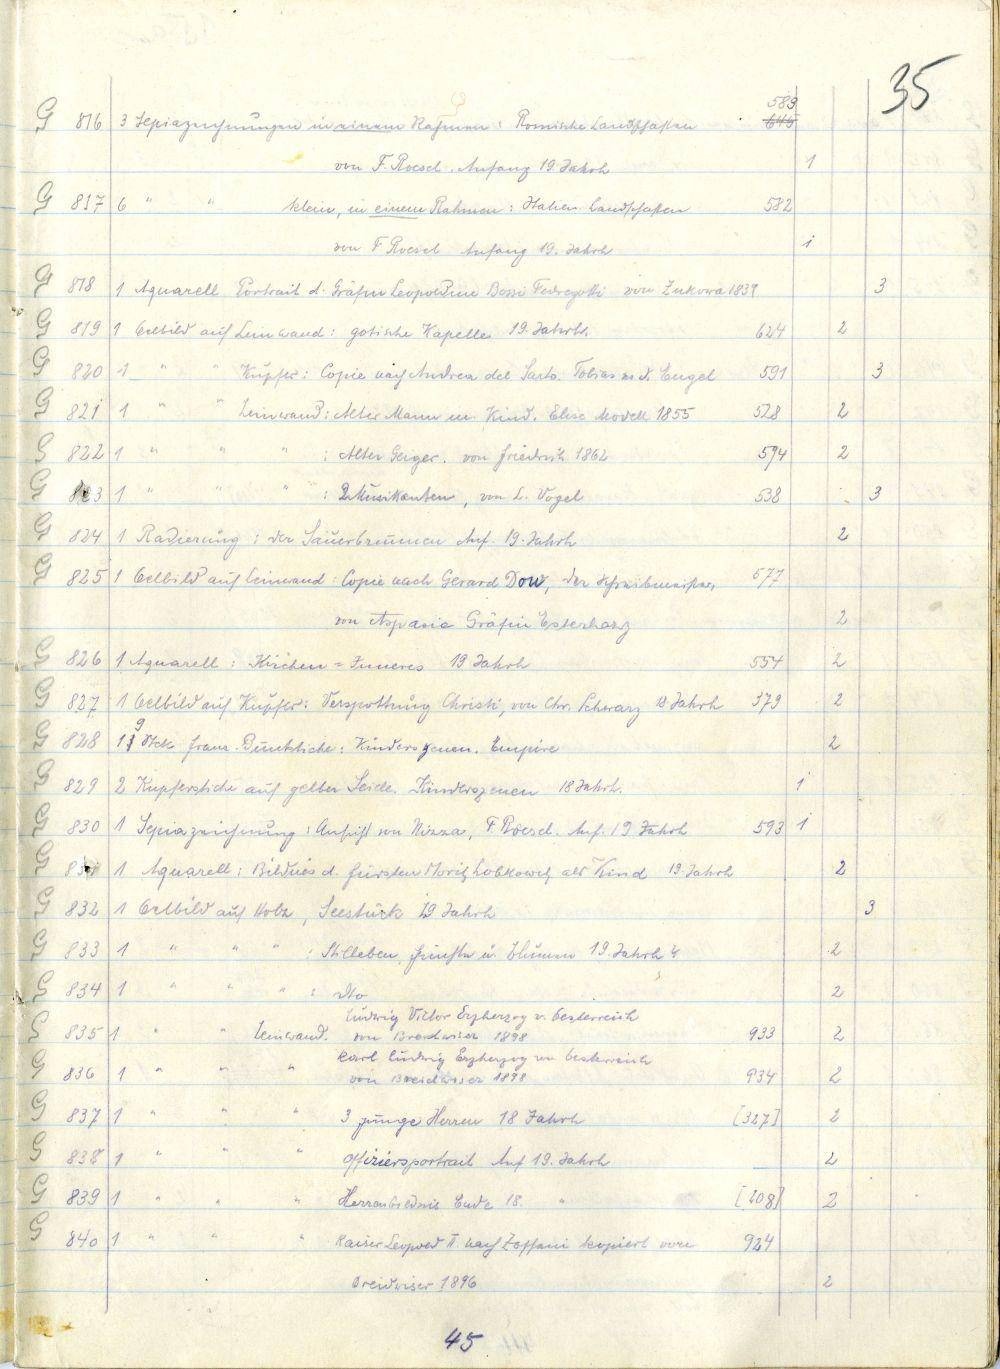 35
589
G 816 3 Sepiazeichnungen in einem Rahmen: Römische Landschaften 645
von F. Roesel. Anfang 19. Jahrh 1
G 817 6 " " klein, in einem Rahmen: Italien. Landschaften 582
von F Roesel Anfang 19. Jahrh 1
G 818 1 Aquarell Portrait d. Gräfin Leopoldine Bossi Fedregotti von Zukowa 1839 3
G 819 1 Oelbild auf Leinwand: gotische Kapelle 19. Jahrh. 624 2
G 820 1 " " Kupfer: Copie nach Andrea del Sarto. Tobias m. d. Engel 591 3
G 821 1 " " Leinwand: Alter Mann m. Kind. Elise Modell 1855 528 2
G 822 1 " " " : Alter Geiger. von Friedrich 1862 594 2
G 823 1 " " " : 2 Musikanten, von L. Vogel 538 3
G 824 1 Radierung: der Sauerbrunnen Anf. 19. Jahrh 2
G 825 1 Oelbild auf Leinwand: Copie nach Gerard Dow, der Schreibmeister, 577
von Aspasia Gräfin Esterhazy 2
G 826 1 Aquarell: Kirchen = Inneres 19 Jahrh 554 2
G 827 1 Oelbild auf Kupfer: Verspottung Christi, von Chr. Schwarz 18 Jahrh 379 2
G 828 Stck franz. Buntstiche: Kinderszenen. Empire 2
G 829 2 Kupferstiche auf gelber Seide. Kinderszenen 18 Jahrh. 1
G 830 1 Sepiazeichnung: Ansicht von Nizza, F. Roesel. Anf. 19 Jahrh 593 1
G 831 1 Aquarell: Bildnis d. Fürsten Moritz Lobkowitz als Kind 19. Jahrh 2
G 832 1 Oelbild auf Holz, Seestück 19 Jahrh 3
G 833 1 " " " : Stilleben, Früchte u. Blumen 19. Jahrh 2
G 834 1 " " " : dto 2
Ludwig Victor Erzherzog v. Oesterreich
G 835 1 " " Leinwand. von Breidwiser 1898 933 2
Karl Ludwig Erzherzog von Oesterreich
G 836 1 " " " von Breidwiser 1898 934 2
G 837 1 " " " 3 junge Herren 18 Jahrh [327] 2
G 838 1 " " " Offiziersportrait Anf 19. Jahrh 2
G 839 1 " " " Herrenbildnis Ende 18. " [208] 2
G 840 1 " " " Kaiser Leopold II. nach Zoffani kopiert von 924
Breidwiser 1896 2
45